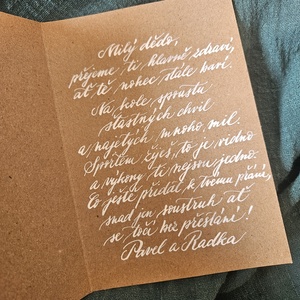 Milý dědo,
přejeme ti hlavně zdraví,
ať tě nohec stále baví.
Na kole spoustu
šťastných chvil
a najetých mnoho mil.
Sportem žiješ, to je vidno
a výkony ti nejsou jedno.
Co ještě předat k tvému přání,
snad jen soustruh ať
se točí bez přestání!
Pavel a Radka